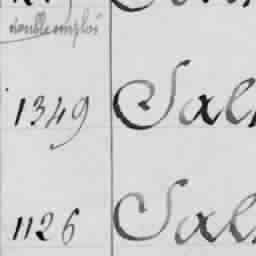 double emploi
1349 Sal
1126 Sal